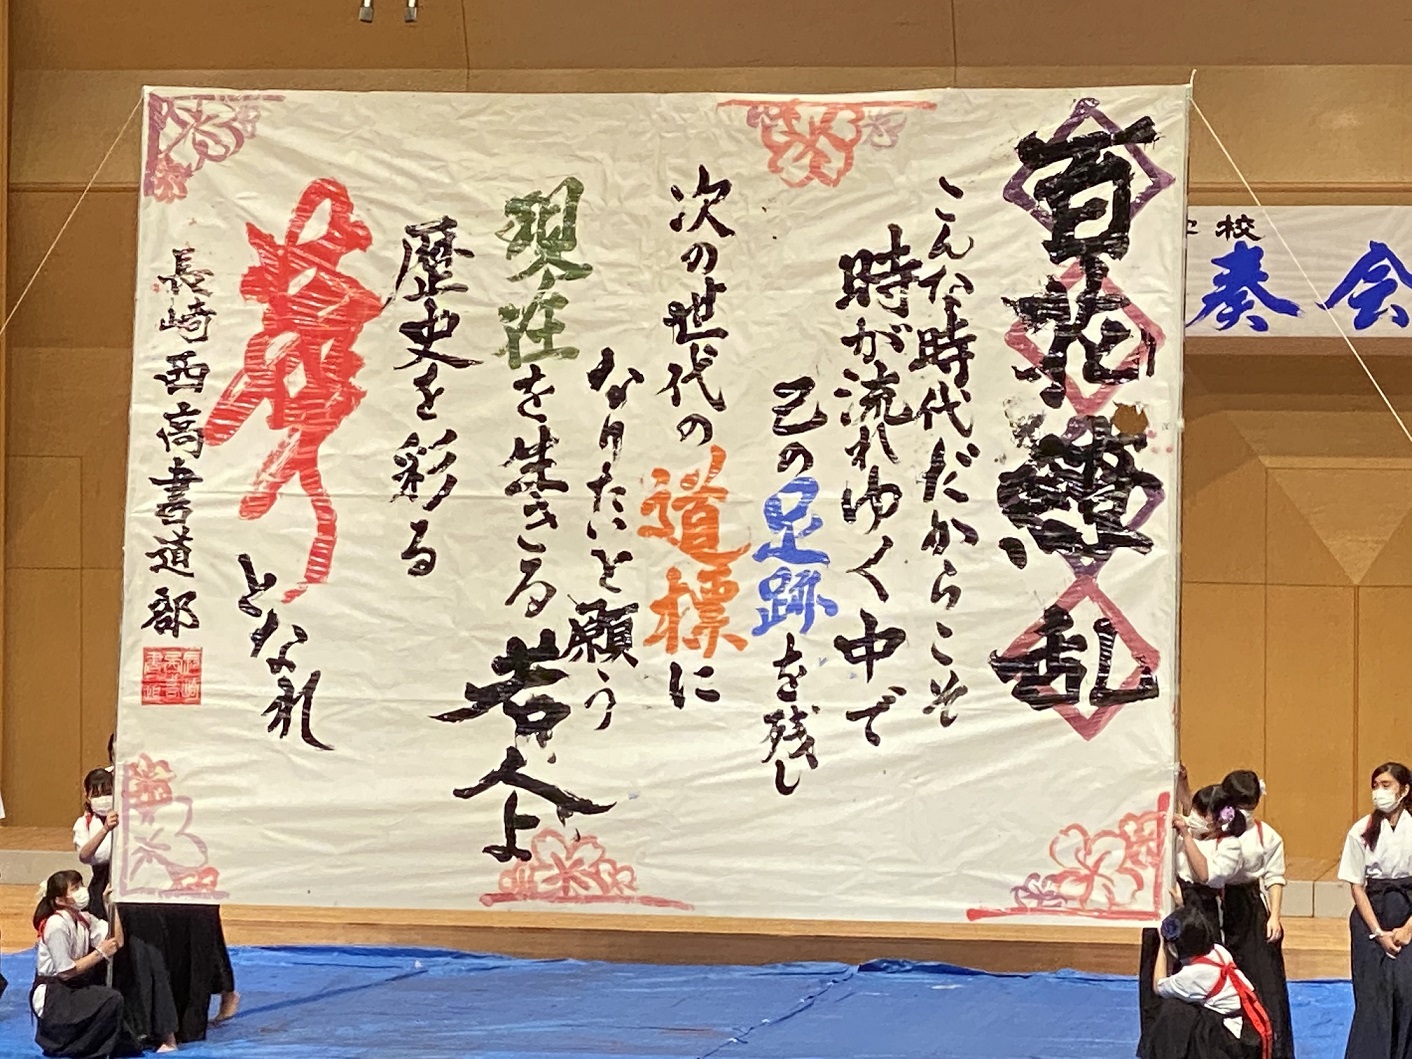 百花繚乱
こんな時代だからこそ
時が流れゆく中で
己の足跡を残し
次の世代の道標に
なりたいと願う
現在を生きる若人よ
歴史を彩る
夢となれ
長崎西高書道部
校
奏会